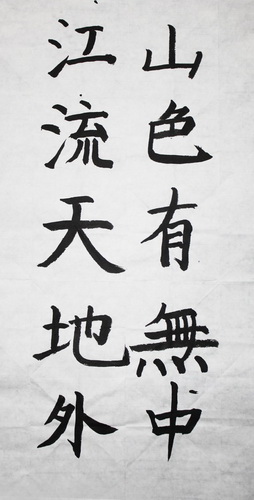 山色有無中
江流天地外